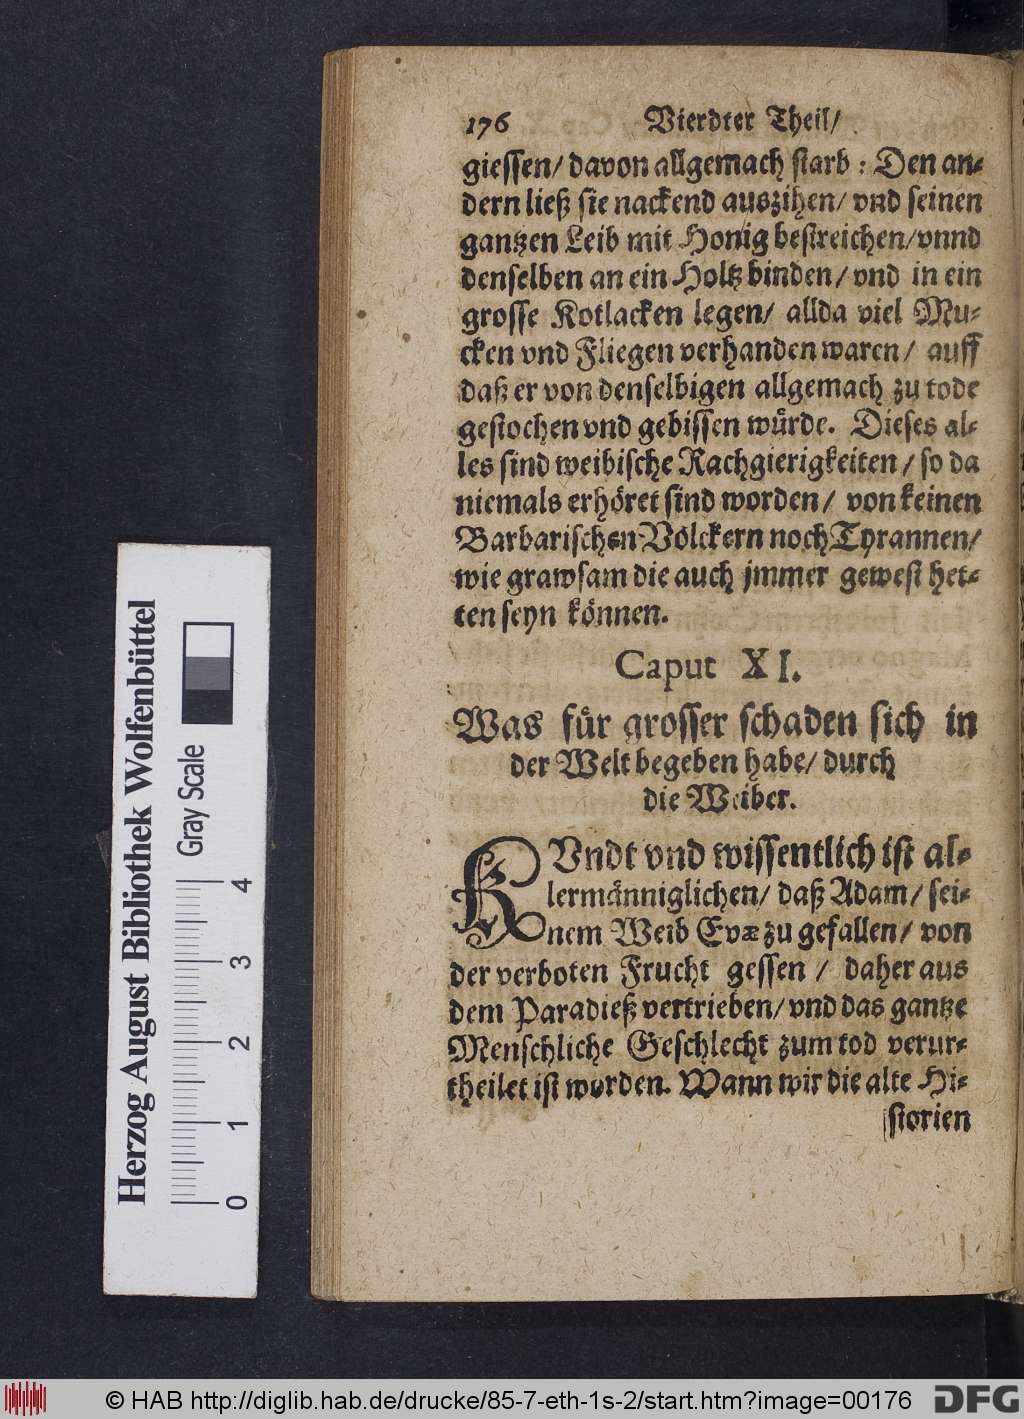 176 Vierdter Theil/
giessen/ davon allgemach starb: Den an-
dern ließ sie nackend auszihen/ vnd seinen
gantzen Leib mit Honig bestreichen/vnnd
denselben an ein Holtz binden/ vnd in ein
grosse Kotlacken legen/ allda viel Mu-
cken vnd Fliegen verhanden waren/ auff
daß er von denselbigen allgemach zu tode
gestochen vnd gebissen würde. Dieses al-
les sind weibische Rachgierigkeiten/ so da
niemals erhöret sind worden/ von keinen
Barbarischen Völckern noch Tyrannen/
wie grawsam die auch jmmer gewest het-
ten seyn können.
Caput XI.
Was für grosser schaden sich in
der Welt begeben habe/ durch
die Weiber.
KVndt vnd wissentlich ist al-
lermänniglichen/ daß Adam/ sei-
nem Weib Evæ zu gefallen/ von
der verboten Frucht gessen/ daher aus
dem Paradieß vertrieben/ vnd das gantze
Menschliche Geschlecht zum tod verur-
theilet ist worden. Wann wir die alte Hi-
storien
Herzog August Bibliothek Wolfenbüttel
Gray Scale
0 1 2 3 4
© HAB http://diglib.hab.de/drucke/85-7-eth-1s-2/start.htm?image=00176
DFG